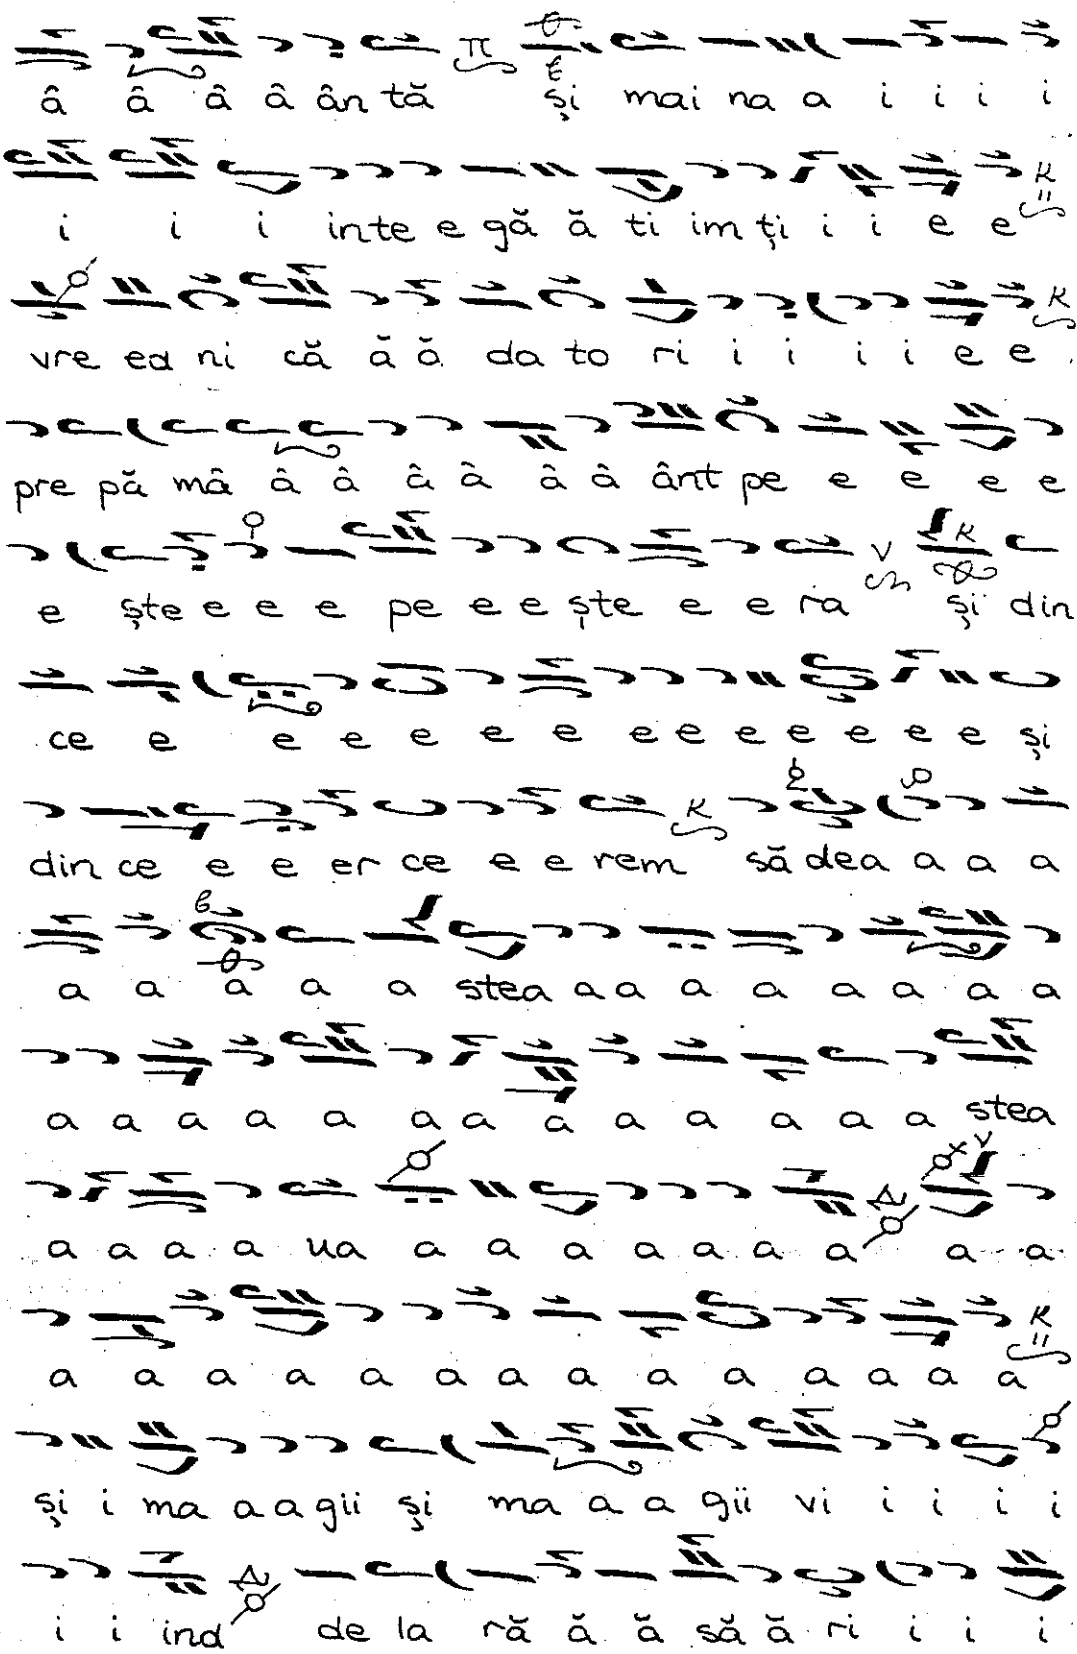 â â â â ân tă și mai na a i i i i
i i i in te e gă ă ti im ți i i e e
vre ea ni că ă ă da to ri i i i i e e
pre pă mâ â â â â â â ânt pe e e e e
e ște e e e pe e e ște e e ra și din
ce e e e e e e e e e e e e e și
din ce e e er ce e e rem să dea a a a
a a a a a stea a a a a a a a a
a a a a a a a a a a a a a stea
a a a a ua a a a a a a a a a
a a a a a a a a a a a a a a
și i ma a a gii și ma a a gii vi i i i i
i i ind de la ră ă ă să ă ri i i i